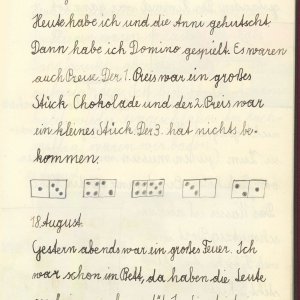 Heute habe ich und die Anni gehutscht
Dann habe ich Domino gespielt. Es waren
auch Preise. Der 1. Preis war ein großes
Stück Chokolade und der 2. Preis war
ein kleines Stück. Der 3. hat nichts be-
kommen.
18. August.
Gestern abends war ein großes Feuer. Ich
war schon im Bett, da haben die Leute